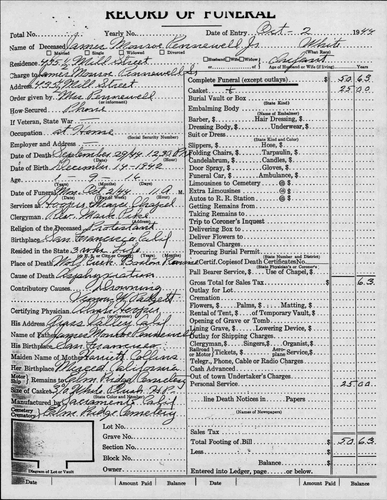 RECORD OF FUNERAL
Total No. Yearly No. Date of Entry Oct - 2 1944
Name of Deceased James Monroe Pennewell Jr. White
Single Married Widowed Divorced (What Race)
Residence 435½ Mill Street Husband Wife Widow of Infant
Charge to James Monroe Pennewell Sr Age of Husband or Wife (if living)
Address 435½ Mill Street
Order given by Mrs Pennewell
How Secured Phone
If Veteran, State War
Occupation at Home
(Social Security Number)
Employer and Address
Date of Death September 29/44 12:30 P.M.
Date of Birth December 14 1942
Age
Date of Funeral Mon. Oct 2/44 11 A. M.
Services at Chapel
Clergyman Rev. Mark
Religion of the Deceased Protestant
Birthplace San Francisco Calif
Resided in the State
Place of Death
Cause of Death Asphyxiation
Contributory Causes Drowning
Certifying Physician
His Address Grass Valley Calif
Name of Father James Monroe Pennewell
His Birthplace
Maiden Name of Mother Harriett Collins
Her Birthplace Merced California
Remains to Cemetery
Size of Casket
(State Color and Number)
Manufactured by Sacramento Calif
Cemetery
Crematory Cemetery
Lot No.
Grave No.
Section No.
Block No.
Owner
Diagram of Lot or Vault
Complete Funeral (except outlays) $ 50 63
Casket 25 00
Burial Vault or Box
(State Kind)
Embalming Body
(Name of Embalmer)
Barber, $ Hair Dressing, $
Dressing Body, $ Underwear, $
Suit or Dress
(State Kind and Color)
Slippers, $ Hose, $
Folding Chairs, $ Tarpaulin, $
Candelabrum, $ Candles, $
Door Spray, $ Gloves, $
Funeral Car, $ Ambulance, $
Limousines to Cemetery @ $
Extra Limousines @ $
Autos to R. R. Station @ $
Getting Remains from
Taking Remains to
Trip to Coroner's Inquest
Delivering Box to
Deliver Flowers to
Removal Charges
Procuring Burial Permit
(State Number and District)
Certif. Copies of Death Certificates No.
(State Physician's or Coroner's)
Pall Bearer Service, $ Use of Chapel, $
Gross Total for Sales Tax $ 63
Outlay for Lot
Cremation
Flowers, $ Palms, $ Matting, $
Rental of Tent, $ of Temporary Vault, $
Opening of Grave or Tomb
Lining Grave, $ Lowering Device, $
Outlay for Shipping Charges
Clergyman, $ Singers, $ Organist, $
Telegr., Phone, Cable or Radio Charges
Cash Advanced
Out of town Undertaker's Charges
Personal Service 25 00
line Death Notices in Papers
(Names of Newspapers)
Sales Tax
Total Footing of Bill $ 50 63
Entered into Ledger, page or below.
Date Amount Paid Balance Date Amount Paid Balance